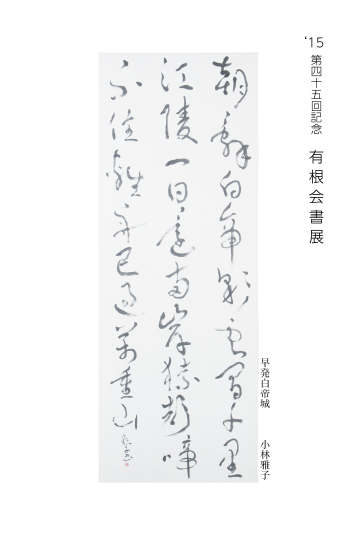 '15 第四十五回記念 有根会書展
朝辭白帝彩雲間千里
江陵一日還兩岸猿聲啼
不住輕舟已過萬重山
早発白帝城 小林雅子